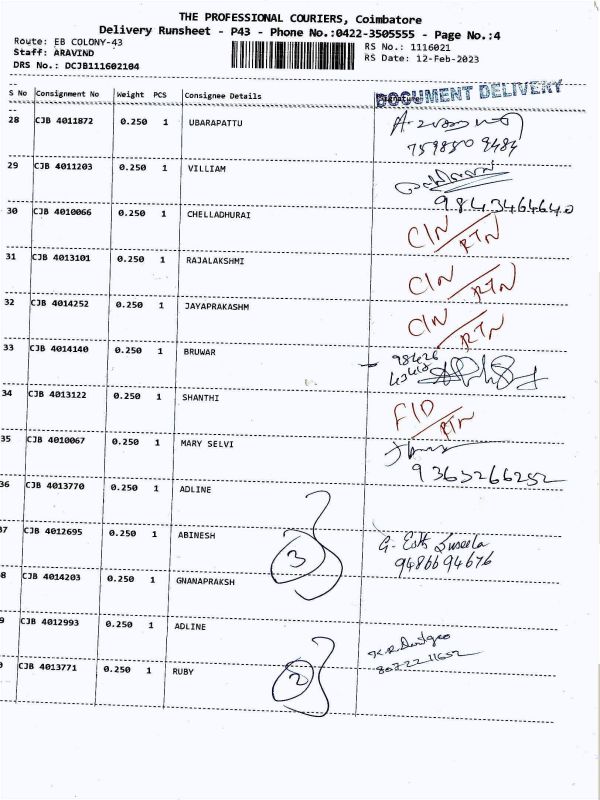 THE PROFESSIONAL COURIERS, Coimbatore
Delivery Runsheet - P43 - Phone No.:0422-3505555 - Page No.:4
Route: EB COLONY-43
Staff: ARAVIND
DRS No.: DCJB111602104
RS No.: 1116021
RS Date: 12-Feb-2023
S No Consignment No Weight PCS Consignee Details
DOCUMENT DELIVERY
28 CJB 4011872 0.250 1 UBARAPATTU
29 CJB 4011203 0.250 1 VILLIAM
9843464640
30 CJB 4010066 0.250 1 CHELLADHURAI C/N RTN
31 CJB 4013101 0.250 1 RAJALAKSHMI C/N RTN
32 CJB 4014252 0.250 1 JAYAPRAKASHM C/N RTN
33 CJB 4014140 0.250 1 BRUWAR 98426
34 CJB 4013122 0.250 1 SHANTHI F/D RTN
35 CJB 4010067 0.250 1 MARY SELVI
9365266252
36 CJB 4013770 0.250 1 ADLINE
37 CJB 4012695 0.250 1 ABINESH 3 G.
9486694676
8 CJB 4014203 0.250 1 GNANAPRAKSH
9 CJB 4012993 0.250 1 ADLINE K.R.
CJB 4013771 0.250 1 RUBY 2